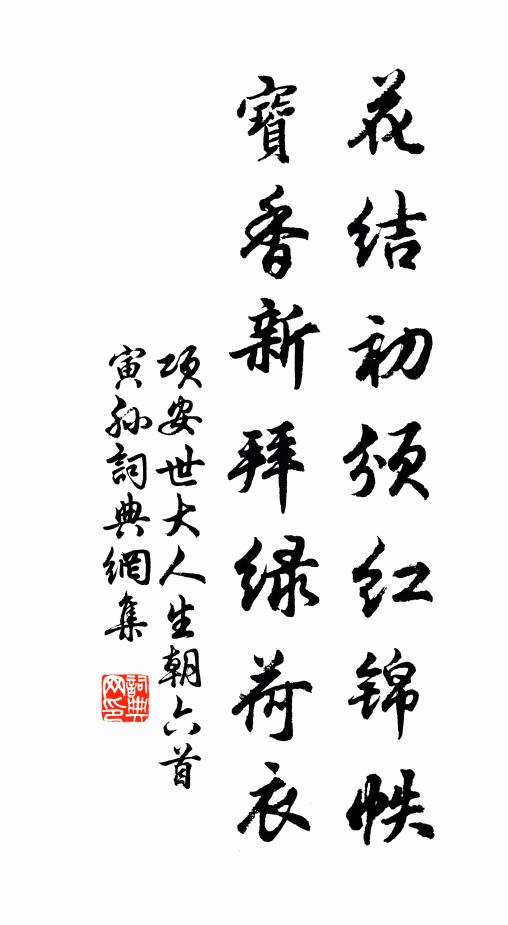 花结初颁红锦帙
寳香新拜绿荷衣
项安世大人生朝六首
寅孙詞典網集
詞典网印